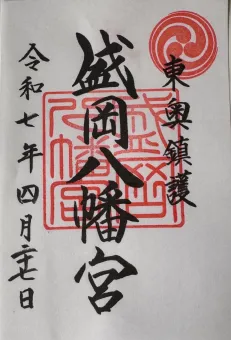 東奥鎮護
盛岡八幡宮
令和七年四月二十七日
盛岡
八幡宮